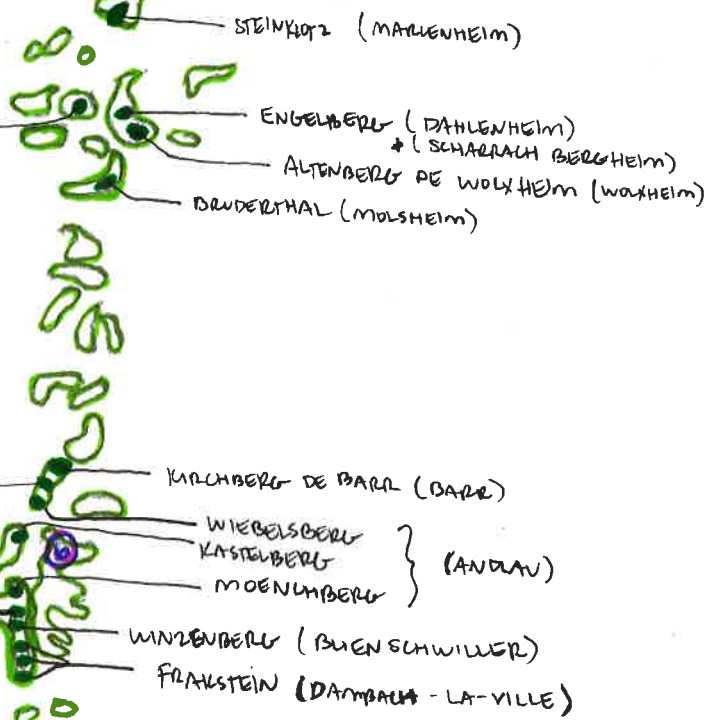 STEINKLOTZ (MARLENHEIM)
ENGELBERG (DAHLENHEIM)
+ (SCHARRACH BERGHEIM)
ALTENBERG DE WOLXHEIM (WOLXHEIM)
BRUDERTHAL (MOLSHEIM)
KIRCHBERG DE BARR (BARR)
WIEBELSBERG
KASTELBERG
(ANDLAU)
MOENCHBERG
WINZENBERG (BLIENSCHWILLER)
FRAKSTEIN (DAMBACH-LA-VILLE)
6